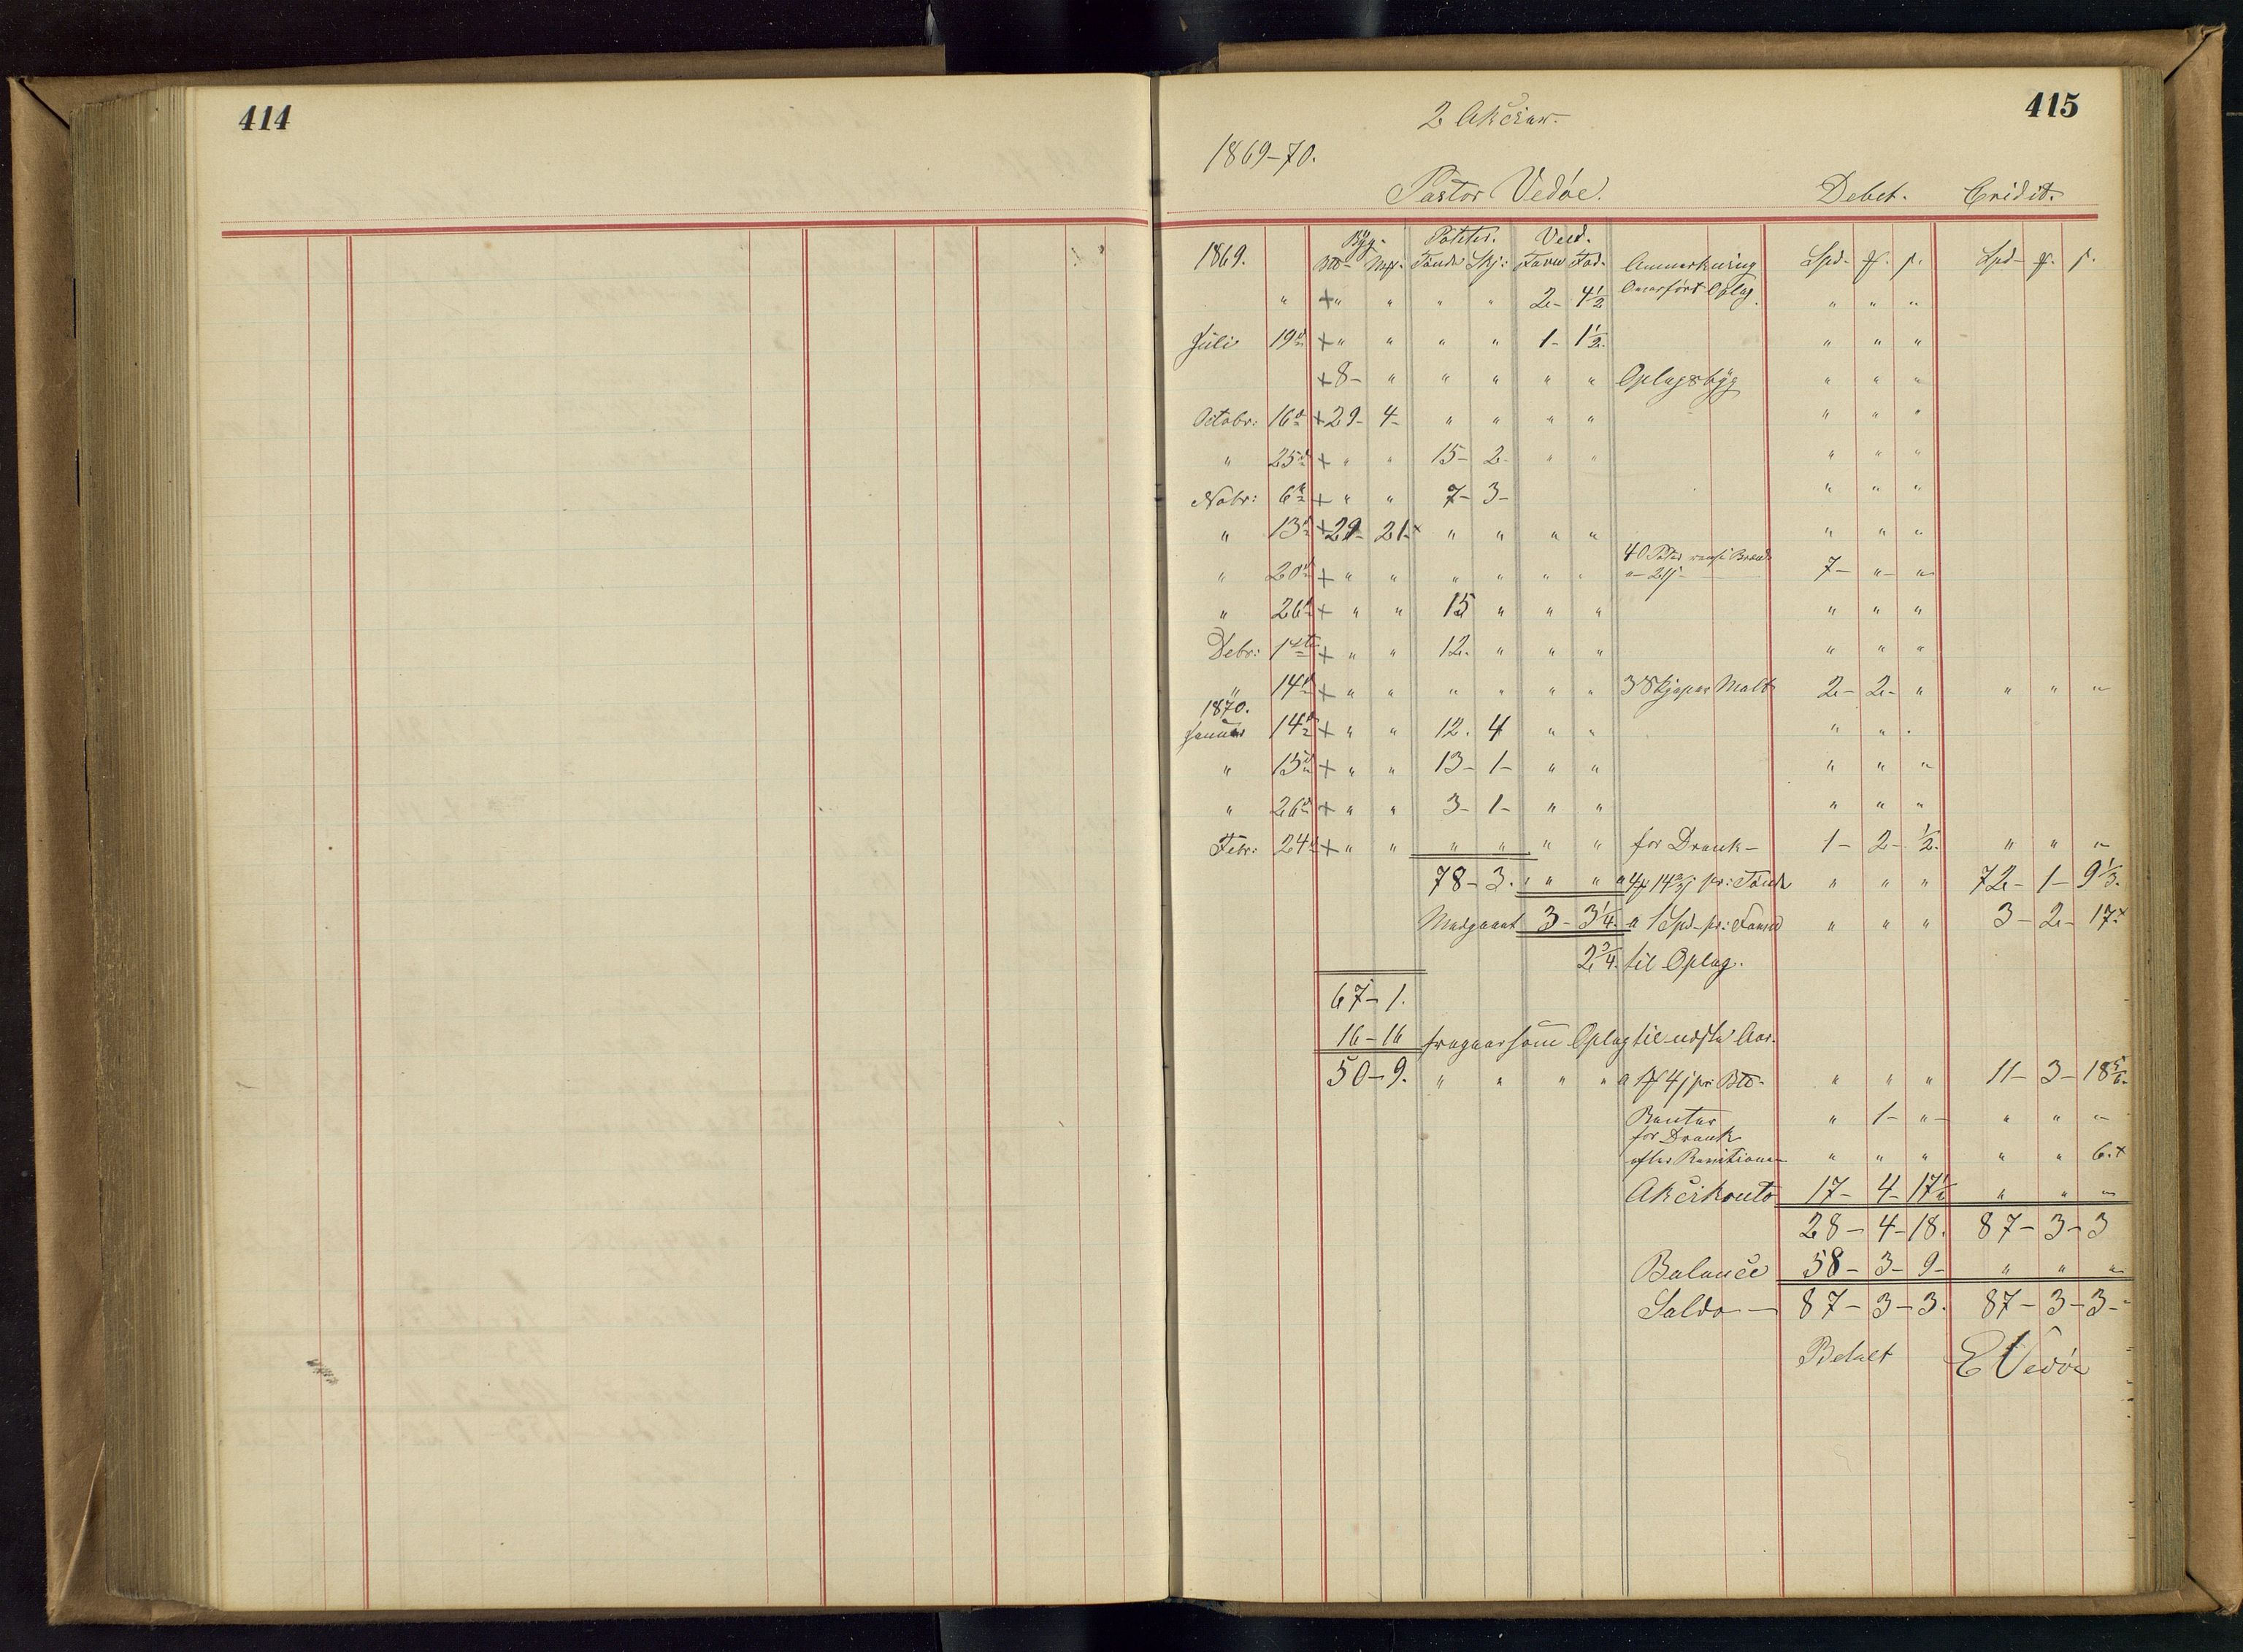 414
415
2 Akcier.
1869-70.
Pastor Vedøe. Debet. Credit.
Byg. Poteter. Ved.
1869. Btd- Mrk. Tønde Skj: Favn Fad. Anmerkning Spd- f. s. Spd- f. s.
" +" " " " 2- 4½ Overført Oplag. " " "
Juli 19d +" " " " 1- 1½ " " "
+8- " " " " " Oplagsbyg " " "
Octobr: 16d +29- 4- " " " " " " "
" 25d + " " 15- 2- " " " " "
Nobr: 6te + " " 7- 3- " " "
" 13d +29- 21-+ " " " " " " "
" 20d + " " " " " " 40 Brænd 7- "- "
" 26d + " " 15 " " " " " "
Debr: 1ste + " " 12- " " " " " "
" 14d + " " " " " " 3 Skjepper Malt 2- 2- " " " "
1870.
Januar 14d + " " 12. 4 " " " " "
" 15d + " " 13- 1- " " " " "
" 26d + " " 3- 1- " " " " "
Febr: 24d + " " " " " " for Drank- 1- 2- ½. " " "
78- 3. " " a 4f 14⅔s pr: Tønde " " " 72- 1- 9⅓.
Medgaaet 3- 3¼. a 1 Spd- pr: Favn " " " 3- 2- 17+
2¾. til Oplag.
67- 1.
16-16 fragaar som Oplag til næste Aar.
50-9. " " " " a 1f 4s pr Btd- " " " 11- 3- 18⅚.
Renter " 1- "- " " "
for Drank
efter " " " " " 6.+
Akcikonto 17- 4- 17½ " " "
28- 4-18. 87- 3-3
Balance 58- 3- 9- " " "
Saldo- 87- 3-3. 87- 3-3-
Betalt E Vedøe